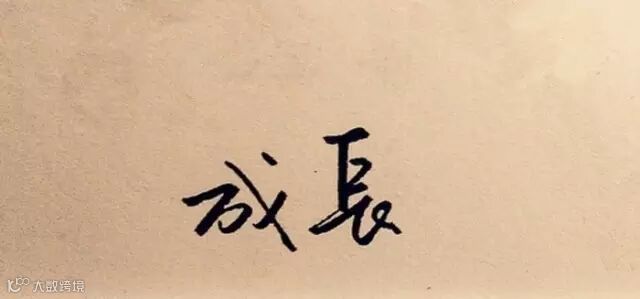 成長
大数跨境